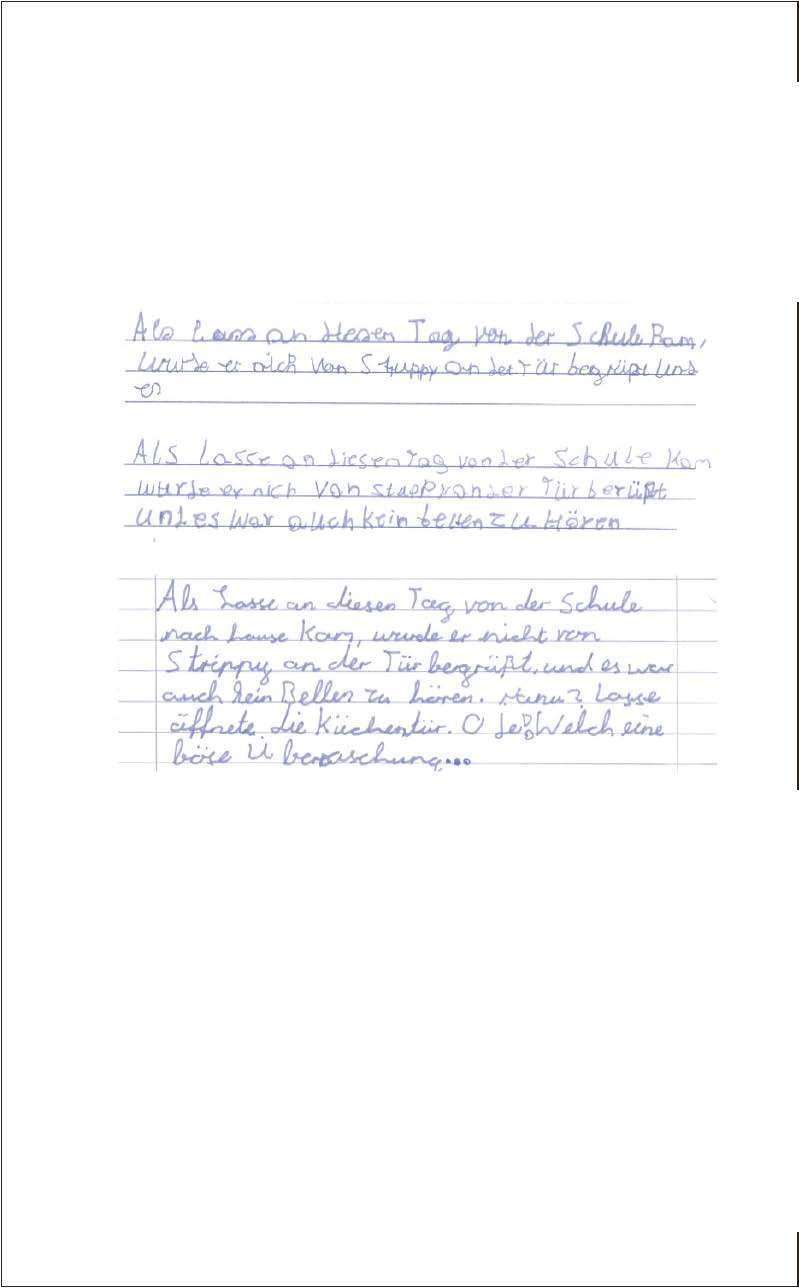 Als Lass an diesen Tag von der Schule kam,
wurde er nich von Stuppy an der Tür begrüßt und
es
ALS Lasse an diesen Tag von der Schule kam
wurde er nich von stappy an der Tür berüßt
und es war auch kein bellen zu Hören
Als Lasse an diesen Tag von der Schule
nach hause kam, wurde er nicht von
Strippy an der Tür begrüßt, und es war
auch kein Bellen zu hören. Lasse
öffnete die Küchentür. O Welch eine
böse Überraschung...